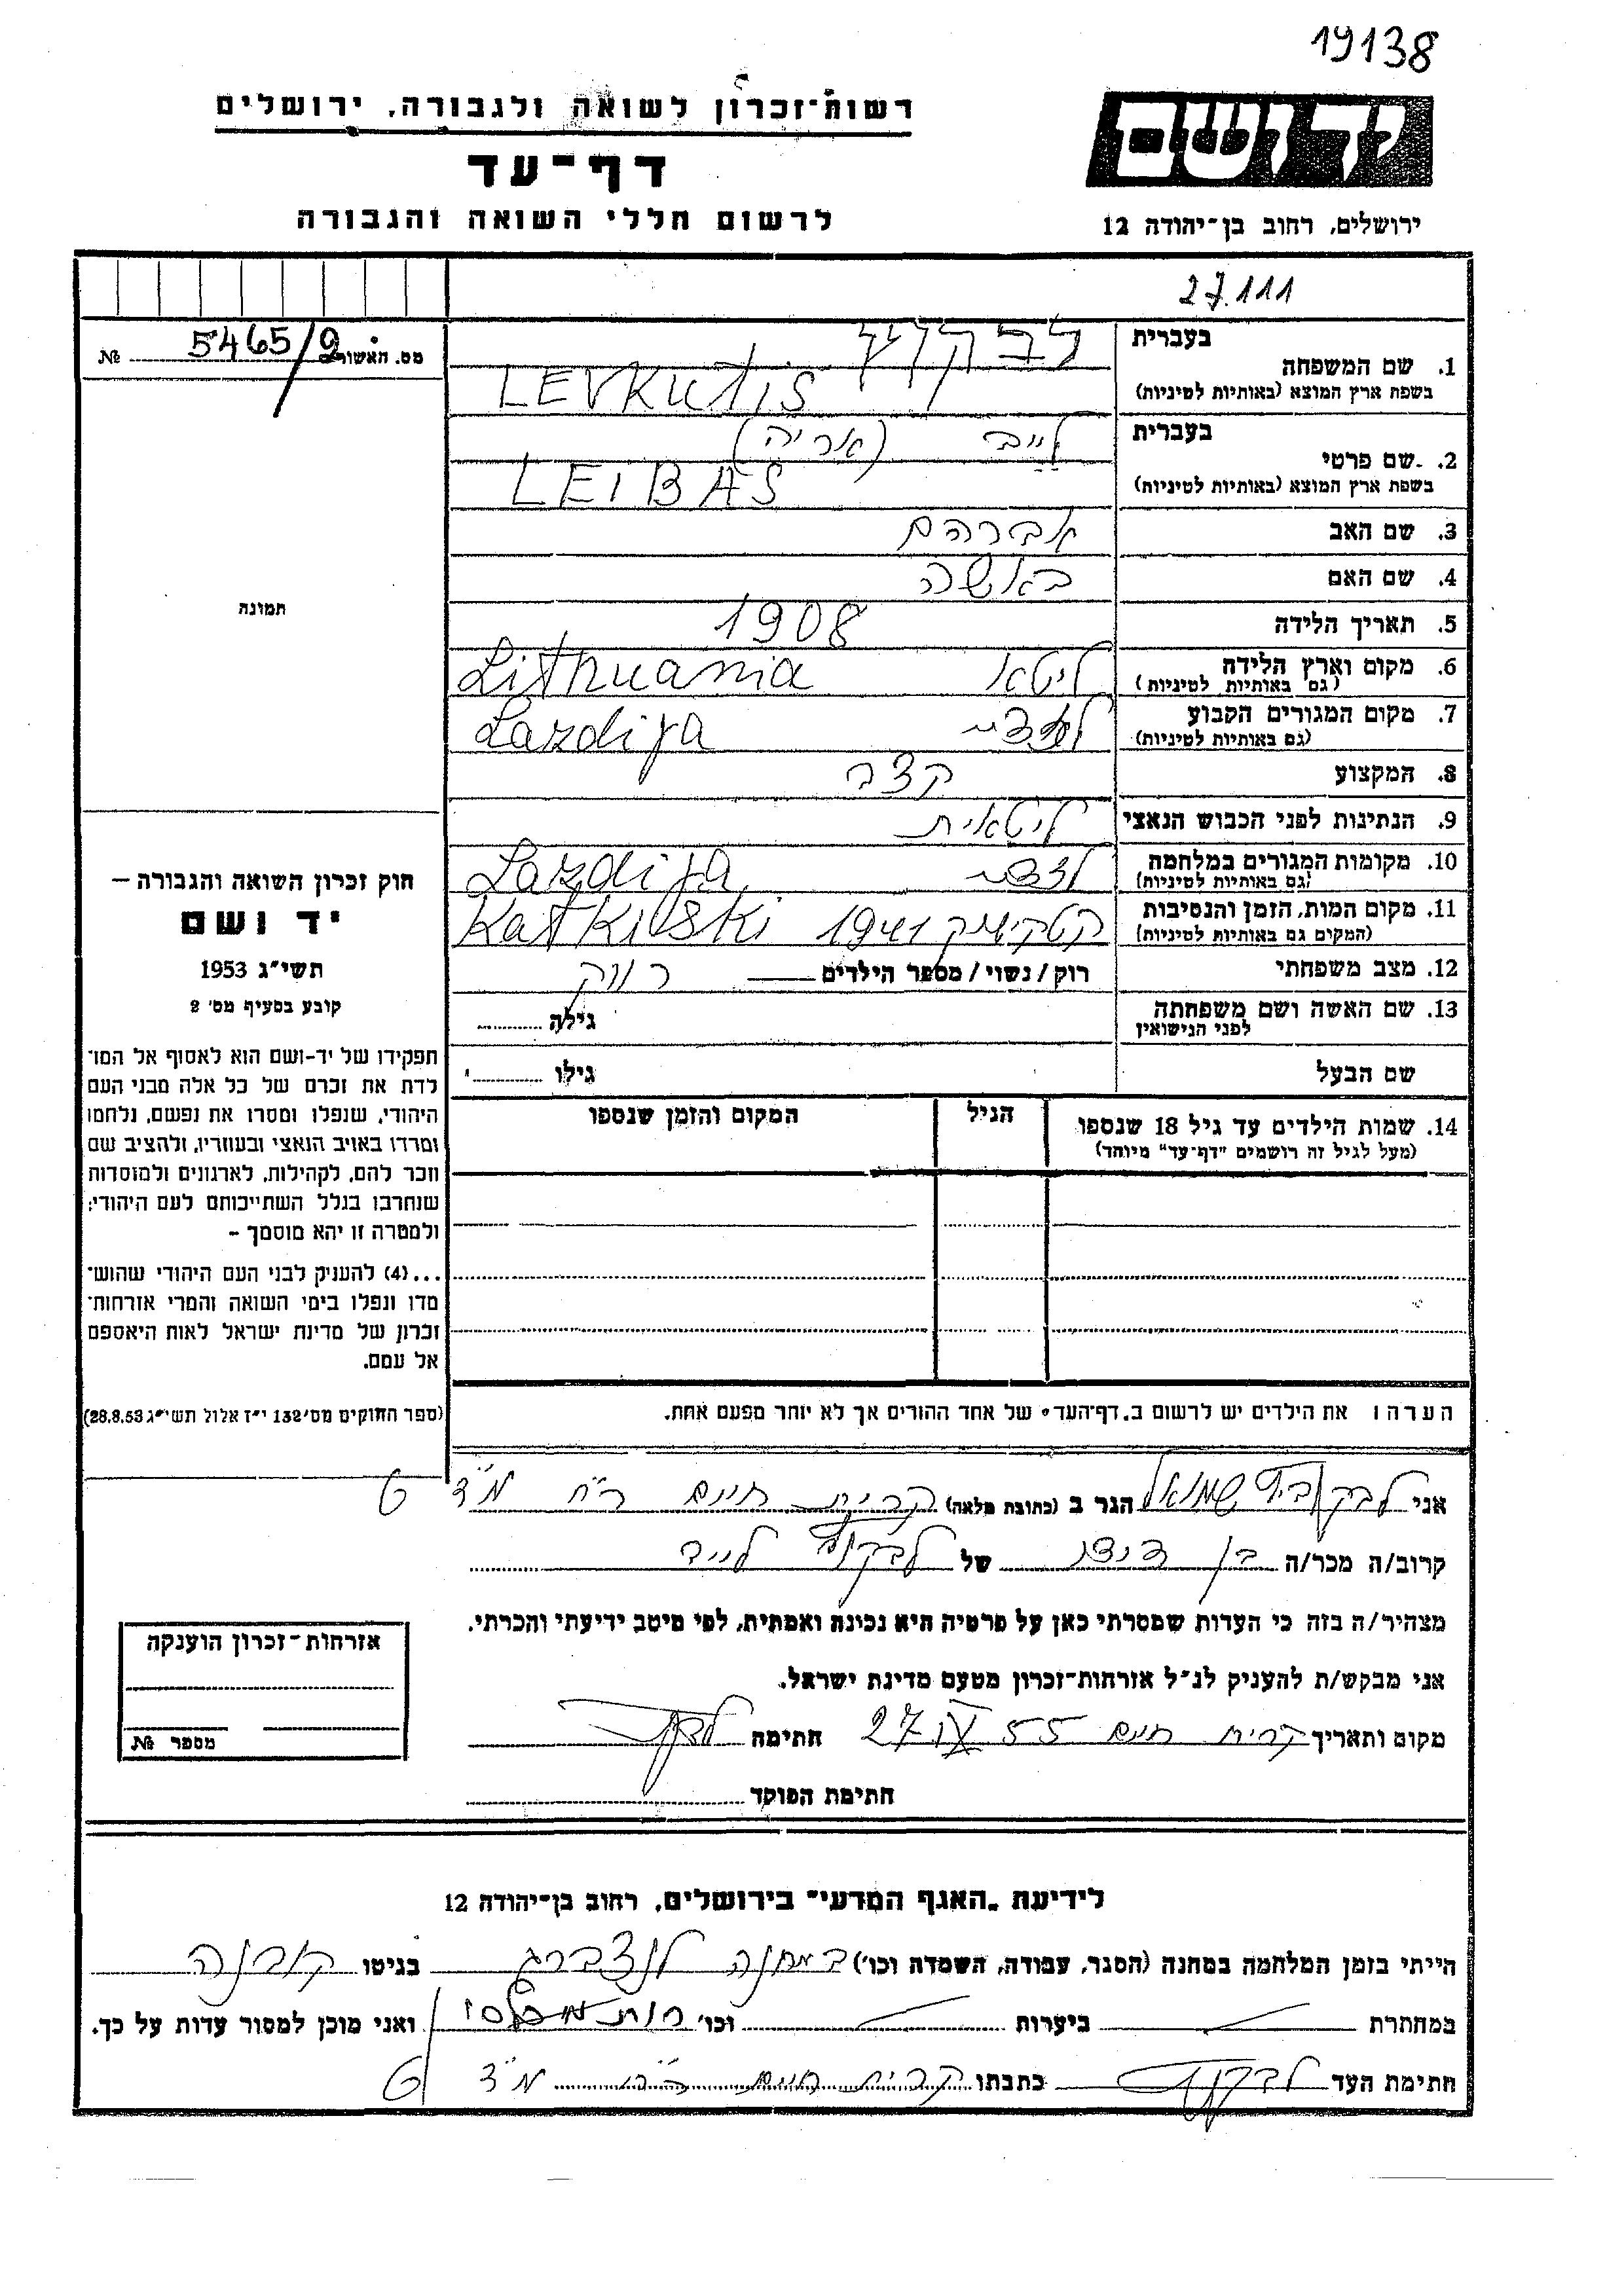 19138
יד ושם
רשות-זכרון לשואה ולגבורה, ירושלים
דף-עד
לרשום חללי השואה והגבורה
ירושלים, רחוב בן-יהודה 12
27.111
מס. האשור 5465/9 №
תמונה
1. שם המשפחה
בעברית
בשפת ארץ המוצא (באותיות לטיניות) LEVKUTIS
2. שם פרטי
בעברית לייב (אריה)
בשפת ארץ המוצא (באותיות לטיניות) LEIBAS
3. שם האב אברהם
4. שם האם באשה
5. תאריך הלידה 1908
6. מקום וארץ הלידה ליטא Lithuania
(גם באותיות לטיניות)
7. מקום המגורים הקבוע Lazdija
(גם באותיות לטיניות)
8. המקצוע קצב
9. הנתינות לפני הכבוש הנאצי ליטאית
10. מקומות המגורים במלחמה Lazdija
(גם באותיות לטיניות)
11. מקום המות, הזמן והנסיבות 1941
(המקום גם באותיות לטיניות)
12. מצב משפחתי רוק/נשוי/מספר הילדים רווק
13. שם האשה ושם משפחתה גילה
לפני הנישואין
שם הבעל גילו
14. שמות הילדים עד גיל 18 שנספו הגיל המקום והזמן שנספו
(מעל לגיל זה רושמים "דף-עד" מיוחד)
הערה: את הילדים יש לרשום ב"דף-העד" של אחד ההורים אך לא יותר מפעם אחת.
חוק זכרון השואה והגבורה –
יד ושם
תשי"ג 1953
קובע בסעיף מס' 2
תפקידו של יד-ושם הוא לאסוף אל המו-
לדת את זכרם של כל אלה מבני העם
היהודי, שנפלו ומסרו את נפשם, נלחמו
ומרדו באויב הנאצי ובעוזריו, ולהציב שם
וזכר להם, לקהילות, לארגונים ולמוסדות
שנחרבו בגלל השתייכותם לעם היהודי;
ולמטרה זו יהא מוסמך –
...(4) להעניק לבני העם היהודי שהוש-
מדו ונפלו בימי השואה והמרי אזרחות-
זכרון של מדינת ישראל לאות היאספם
אל עמם.
(ספר החוקים מס' 132 י"ז אלול תשי"ג 28.8.53)
אני שמואל הגר ב (כתובת מלאה) קרית חיים
קרוב/ה מכר/ה בן דוד של לייב
מצהיר/ה בזה כי העדות שמסרתי כאן על פרטיה היא נכונה ואמתית, לפי מיטב ידיעתי והכרתי.
אני מבקש/ת להעניק לנ"ל אזרחות-זכרון מטעם מדינת ישראל.
מקום ותאריך קרית חיים 27 IX 55 חתימה
חתימת הפוקד
אזרחות-זכרון הוענקה
מספר №
לידיעת "האגף המדעי" בירושלים, רחוב בן-יהודה 12
הייתי בזמן המלחמה במחנה (הסגר, עבודה, השמדה וכו') במחנה לנצברג בגיטו קובנה
במחתרת ביערות וכו' ואני מוכן למסור עדות על כך.
חתימת העד כתבתו קרית חיים